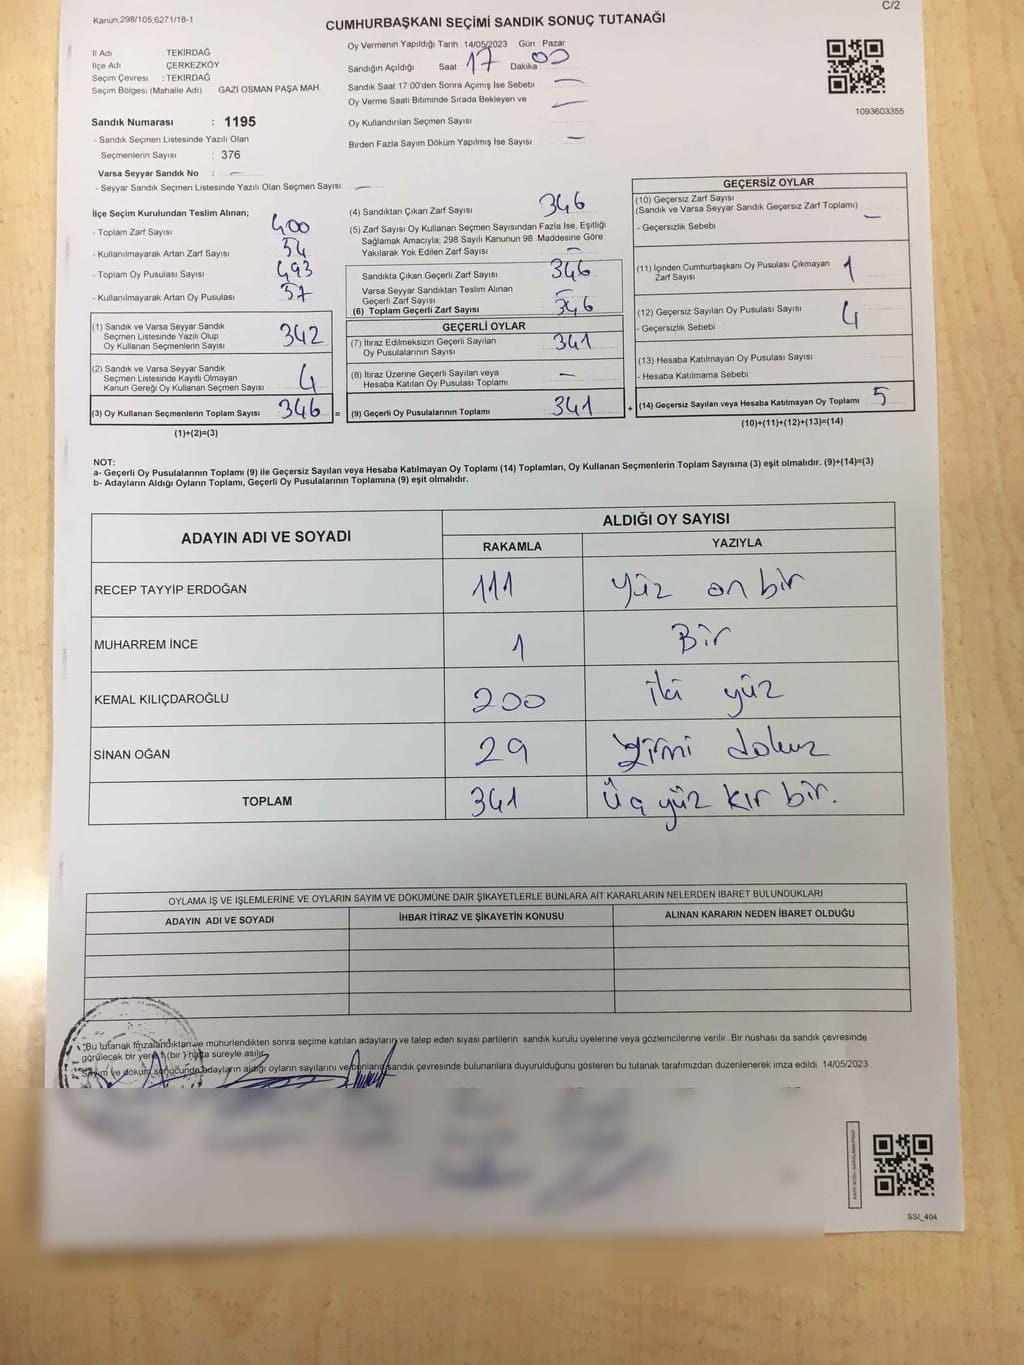 Kanun;298/105;6271/18-1
C/2
CUMHURBAŞKANI SEÇİMİ SANDIK SONUÇ TUTANAĞI
İl Adı TEKİRDAĞ
İlçe Adı ÇERKEZKÖY
Seçim Çevresi : TEKİRDAĞ
Seçim Bölgesi (Mahalle Adı) GAZİ OSMAN PAŞA MAH.
Oy Vermenin Yapıldığı Tarih : 14/05/2023 Gün : Pazar
Sandığın Açıldığı Saat 17 Dakika 00
Sandık Saat 17:00'den Sonra Açımış İse Sebebi —
Oy Verme Saati Bitiminde Sırada Bekleyen ve —
Oy Kullandırılan Seçmen Sayısı
Birden Fazla Sayım Döküm Yapılmış İse Sayısı : —
1093603355
Sandık Numarası : 1195
- Sandık Seçmen Listesinde Yazılı Olan
Seçmenlerin Sayısı : 376
Varsa Seyyar Sandık No : —
- Seyyar Sandık Seçmen Listesinde Yazılı Olan Seçmen Sayısı: —
İlçe Seçim Kurulundan Teslim Alınan;
- Toplam Zarf Sayısı 400
- Kullanılmayarak Artan Zarf Sayısı 54
- Toplam Oy Pusulası Sayısı
- Kullanılmayarak Artan Oy Pusulası
(1) Sandık ve Varsa Seyyar Sandık
Seçmen Listesinde Yazılı Olup
Oy Kullanan Seçmenlerin Sayısı 342
(2) Sandık ve Varsa Seyyar Sandık
Seçmen Listesinde Kayıtlı Olmayan
Kanun Gereği Oy Kullanan Seçmen Sayısı 4
(3) Oy Kullanan Seçmenlerin Toplam Sayısı 346 =
(1)+(2)=(3)
(4) Sandıktan Çıkan Zarf Sayısı 346
(5) Zarf Sayısı Oy Kullanan Seçmen Sayısından Fazla İse, Eşitliği
Sağlamak Amacıyla; 298 Sayılı Kanunun 98. Maddesine Göre
Yakılarak Yok Edilen Zarf Sayısı : —
Sandıkta Çıkan Geçerli Zarf Sayısı 346
Varsa Seyyar Sandıktan Teslim Alınan
Geçerli Zarf Sayısı —
(6) Toplam Geçerli Zarf Sayısı 346
GEÇERLİ OYLAR
(7) İtiraz Edilmeksizin Geçerli Sayılan
Oy Pusulalarının Sayısı 341
(8) İtiraz Üzerine Geçerli Sayılan veya
Hesaba Katılan Oy Pusulası Toplamı —
(9) Geçerli Oy Pusulalarının Toplamı 341 +
GEÇERSİZ OYLAR
(10) Geçersiz Zarf Sayısı
(Sandık ve Varsa Seyyar Sandık Geçersiz Zarf Toplamı) —
- Geçersizlik Sebebi
(11) İçinden Cumhurbaşkanı Oy Pusulası Çıkmayan
Zarf Sayısı 1
(12) Geçersiz Sayılan Oy Pusulası Sayısı 4
- Geçersizlik Sebebi
(13) Hesaba Katılmayan Oy Pusulası Sayısı
- Hesaba Katılmama Sebebi
(14) Geçersiz Sayılan veya Hesaba Katılmayan Oy Toplamı 5
(10)+(11)+(12)+(13)=(14)
NOT:
a- Geçerli Oy Pusulalarının Toplamı (9) ile Geçersiz Sayılan veya Hesaba Katılmayan Oy Toplamı (14) Toplamları, Oy Kullanan Seçmenlerin Toplam Sayısına (3) eşit olmalıdır. (9)+(14)=(3)
b- Adayların Aldığı Oyların Toplamı, Geçerli Oy Pusulalarının Toplamına (9) eşit olmalıdır.
ADAYIN ADI VE SOYADI
ALDIĞI OY SAYISI
RAKAMLA YAZIYLA
RECEP TAYYİP ERDOĞAN 111 Yüz on bir
MUHARREM İNCE 1 Bir
KEMAL KILIÇDAROĞLU 200 iki yüz
SİNAN OĞAN 29 Yirmi dokuz
TOPLAM 341 Üç yüz kır bir.
OYLAMA İŞ VE İŞLEMLERİNE VE OYLARIN SAYIM VE DÖKÜMÜNE DAİR ŞİKAYETLERLE BUNLARA AİT KARARLARIN NELERDEN İBARET BULUNDUKLARI
ADAYIN ADI VE SOYADI İHBAR İTİRAZ VE ŞİKAYETİN KONUSU ALINAN KARARIN NEDEN İBARET OLDUĞU
"Bu tutanak İmzalandıktan ve mühürlendikten sonra seçime katılan adayların ve talep eden siyasi partilerin sandık kurulu üyelerine veya gözlemcilerine verilir. Bir nüshası da sandık çevresinde
görülecek bir yere 1 (bir ) hafta süreyle asılır.
Sayım ve döküm sonucunda adayların aldığı oyların sayılarını ve bunların sandık çevresinde bulunanlara duyurulduğunu gösteren bu tutanak tarafımızdan düzenlenerek imza edildi. 14/05/2023
SSI_404